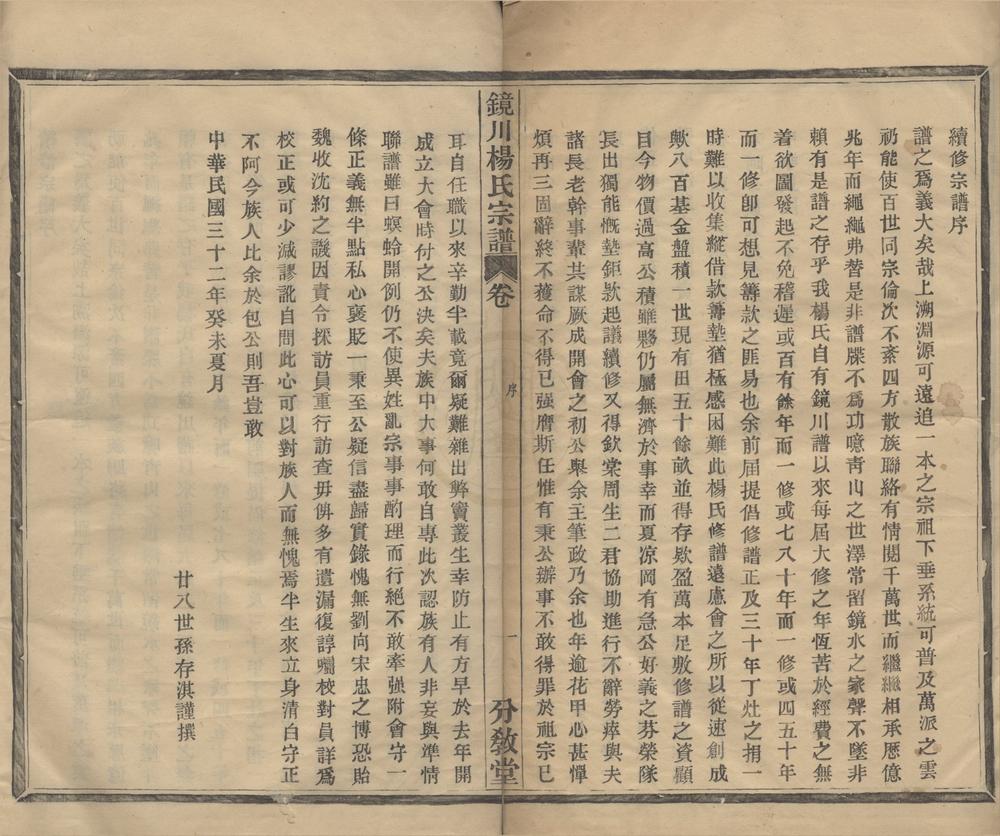 續修宗譜序
譜之爲義大矣哉上溯淵源可遠追一本之宗祖下垂系統可普及萬派之雲
礽能使百世同宗倫次不紊四方散族聯絡有情閱千萬世而繼繼相承歷億
兆年而繩繩弗替是非譜牒不爲功噫靑山之世澤常留鏡水之家聲不墜非
賴有是譜之存乎我楊氏自有鏡川譜以來每屆大修之年恆苦於經費之無
着欲圖發起不免稽遲或百有餘年而一修或七八十年而一修或四五十年
而一修卽可想見籌款之匪易也余前屆提倡修譜正及三十年丁灶之捐一
時難以收集縱借款籌墊猶極感困難此楊氏修譜遠慮會之所以從速創成
歟八百基金盤積一世現有田五十餘畝並得存欵盈萬本足敷修譜之資顧
目今物價過高公積雖夥仍屬無濟於事幸而夏凉岡有急公好義之芬榮隊
長出獨能慨墊鉅欵起議續修又得欽棠周生二君協助進行不辭勞瘁與夫
諸長老幹事輩共謀厥成開會之初公舉余主筆政乃余也年逾花甲心甚憚
煩再三固辭終不獲命不得已强膺斯任惟有秉公辦事不敢得罪於祖宗已
鏡川楊氏宗譜 卷 序 一 分敎堂
耳自任職以來辛勤半載竟爾疑難雜出弊竇叢生幸防止有方早於去年開
成立大會時付之公決矣夫族中大事何敢自專此次認族有人非妄與準情
聯譜雖曰螟蛉開例仍不使異姓亂宗事事酌理而行絕不敢牽强附會守一
條正義無半點私心褒貶一秉至公疑信盡歸實錄愧無劉向宋忠之博恐貽
魏收沈約之譏因責令採訪員重行訪查毋俾多有遺漏復諄囑校對員詳爲
校正或可少減謬訛自問此心可以對族人而無愧焉半生來立身清白守正
不阿今族人比余於包公則吾豈敢
中華民國三十二年癸未夏月
廿八世孫存淇謹撰